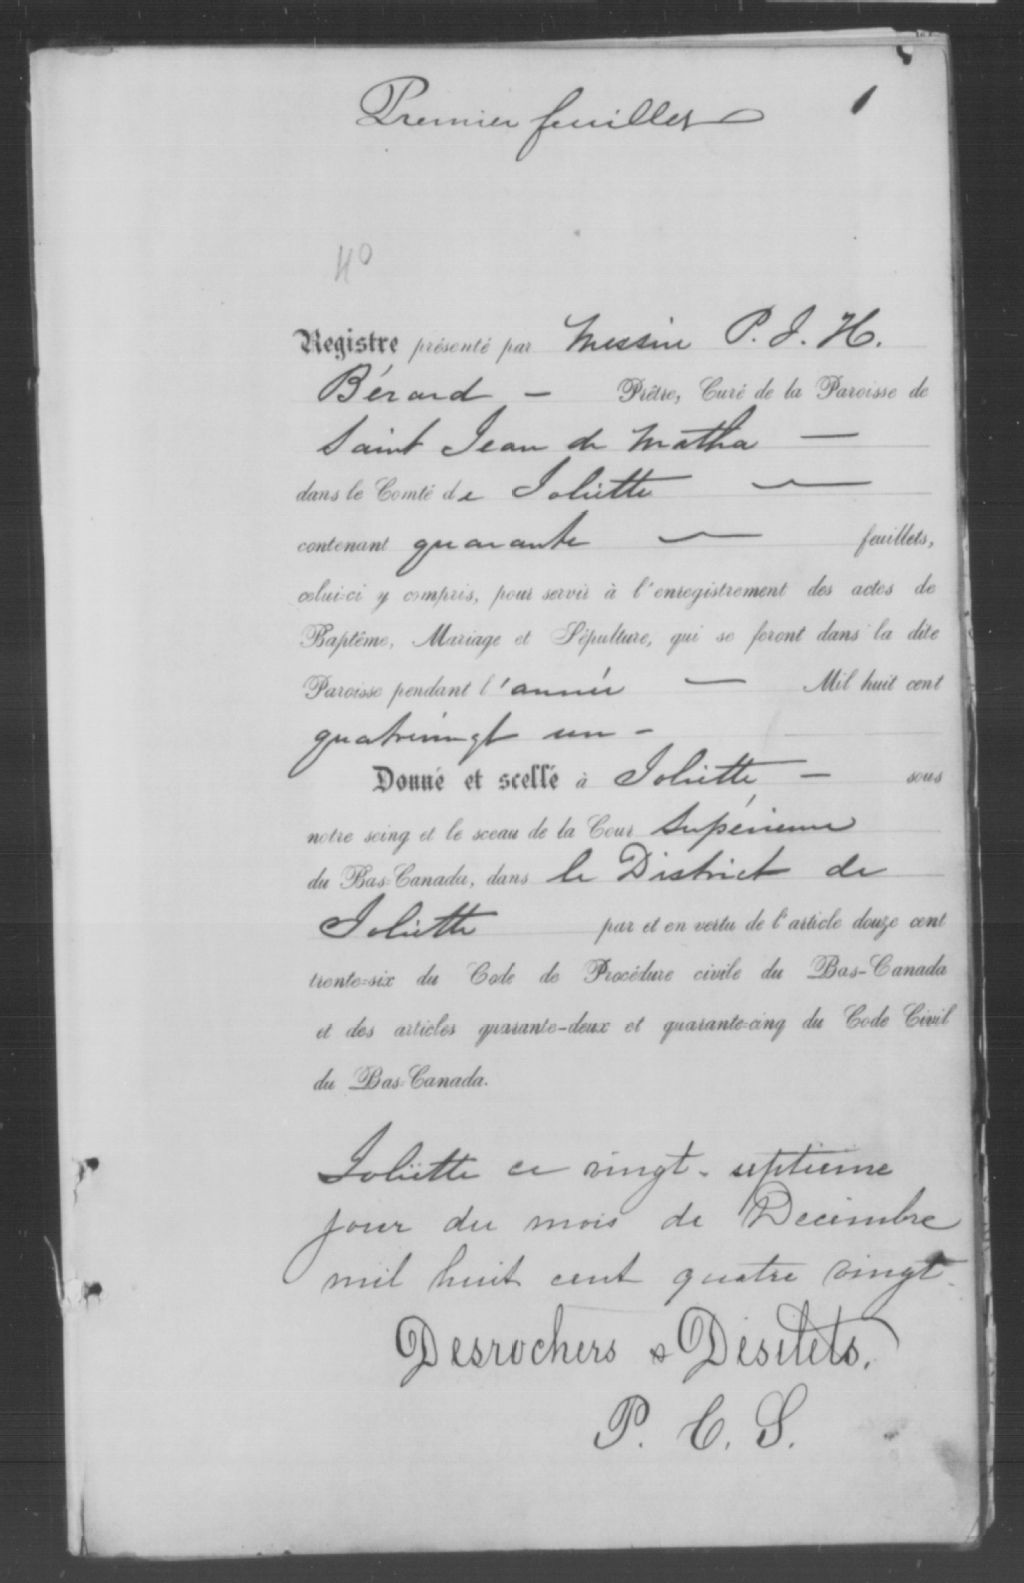 Premier feuillet 1
40
Registre présenté par Messire P. J. H.
Bérard — Prêtre, Curé de la Paroisse de
Saint Jean de Matha —
dans le Comté de Joliette —
contenant quarante — feuillets,
celui-ci y compris, pour servir à l'enregistrement des actes de
Baptême, Mariage et Sépulture, qui se feront dans la dite
Paroisse pendant l'année — Mil huit cent
quatrevingt un -
Donné et scellé à Joliette, — sous
notre seing et le sceau de la Cour Supérieure
du Bas-Canada, dans le District de
Joliette par et en vertu de l'article douze cent
trente-six du Code de Procédure civile du Bas-Canada
et des articles quarante-deux et quarante-cinq du Code Civil
du Bas-Canada.
Joliette ce vingt-septieme
jour du mois de Decembre
mil huit cent quatre vingt.
Desrochers & Désilets,
P. C. S.